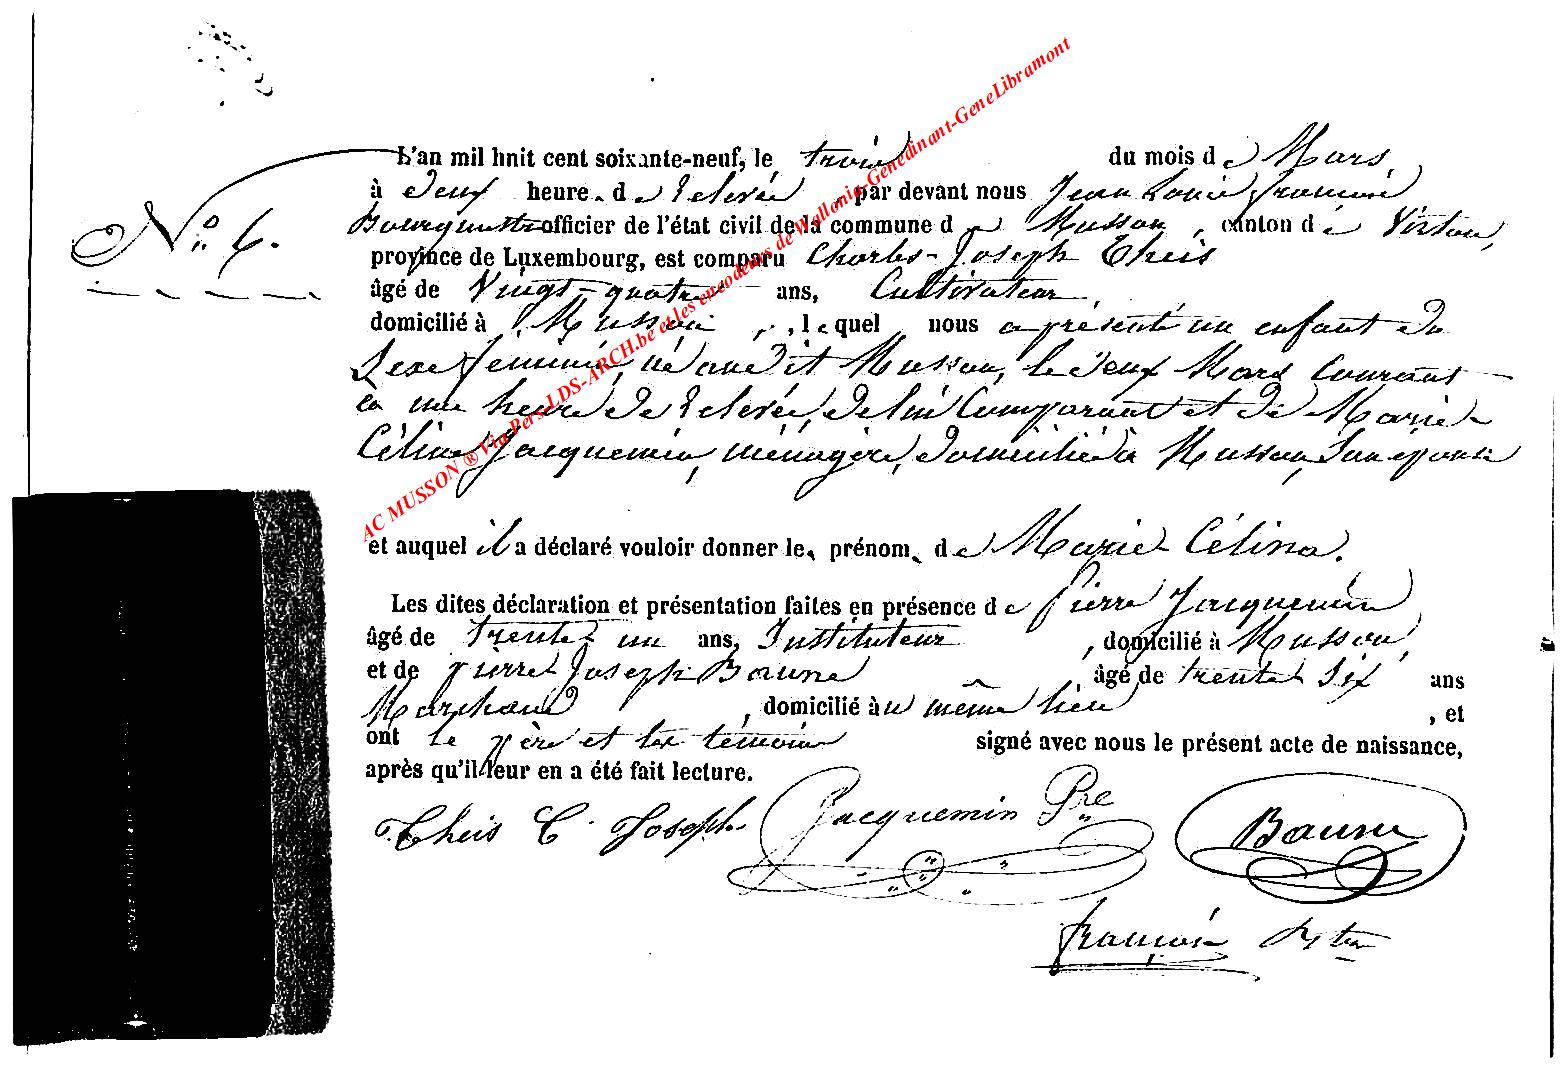 N° 6.
L'an mil huit cent soixante-neuf, le trois du mois de Mars
à deux heures de relevée, par devant nous Jean Louis François
officier de l'état civil de la commune de Musson, canton de Virton,
province de Luxembourg, est comparu Charles-Joseph Theis
âgé de Vingt-quatre ans, Cultivateur,
domicilié à Musson, lequel nous a présenté un enfant du
Sexe féminin, né audit Musson, le deux Mars Courant
à une heure de relevée, de lui Comparant et de Marie
Célina Jacquemin, ménagère, domiciliée à Musson, Son épouse
et auquel il a déclaré vouloir donner les prénoms de Marie-Célina.
Les dites déclaration et présentation faites en présence de Pierre Jacquemin
âgé de trente-un ans, Instituteur, domicilié à Musson,
et de pierre Joseph Baune âgé de trente six ans
Marchand, domicilié au même lieu, et
ont le père et les témoins signé avec nous le présent acte de naissance,
après qu'il leur en a été fait lecture.
Theis C. Joseph Jacquemin Pre Baune
françois
AC MUSSON ® Via Pers.LDS-ARCH.be et les encodeurs de Wallonia-Genedinant-GeneLibramont